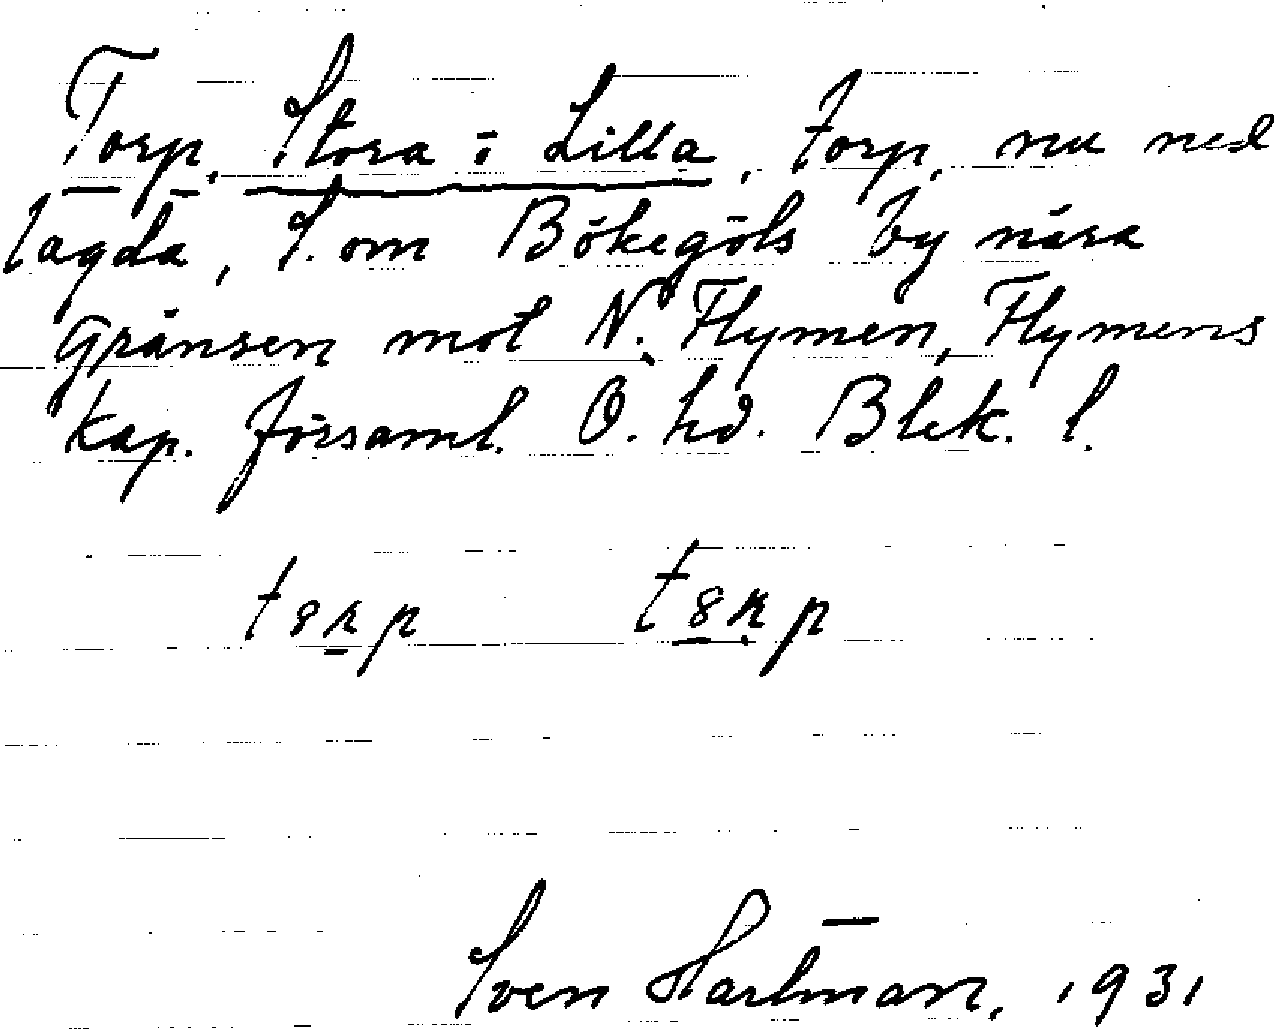 Torp, Stora o Lilla, torp, nu ned
lagda, S. om Bökegöls by nära
gränsen mot N. Flymen, Flymens
kap. församl. Ö. hd. Blek. l.
Sven Hartman, 1931